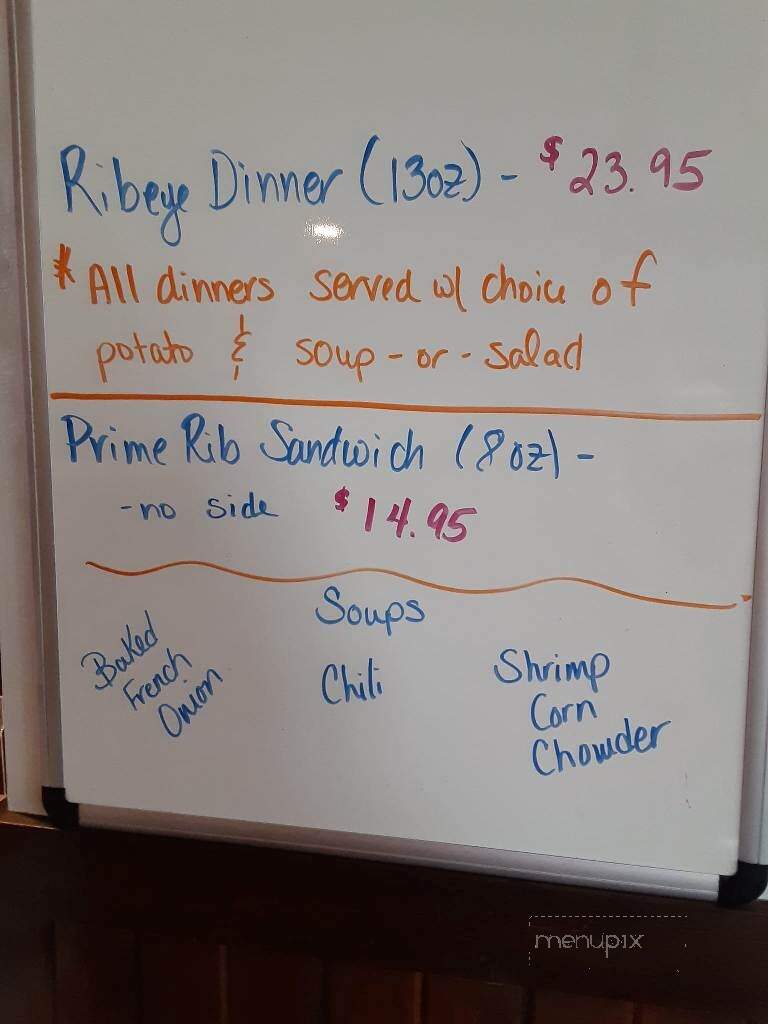 Ribeye Dinner (13oz) - $23.95
* All dinners served w/ choice of
potato & soup - or - salad
Prime Rib Sandwich (8oz) -
- no side $14.95
Soups
Baked
French
Onion
Chili
Shrimp
Corn
Chowder
menupix